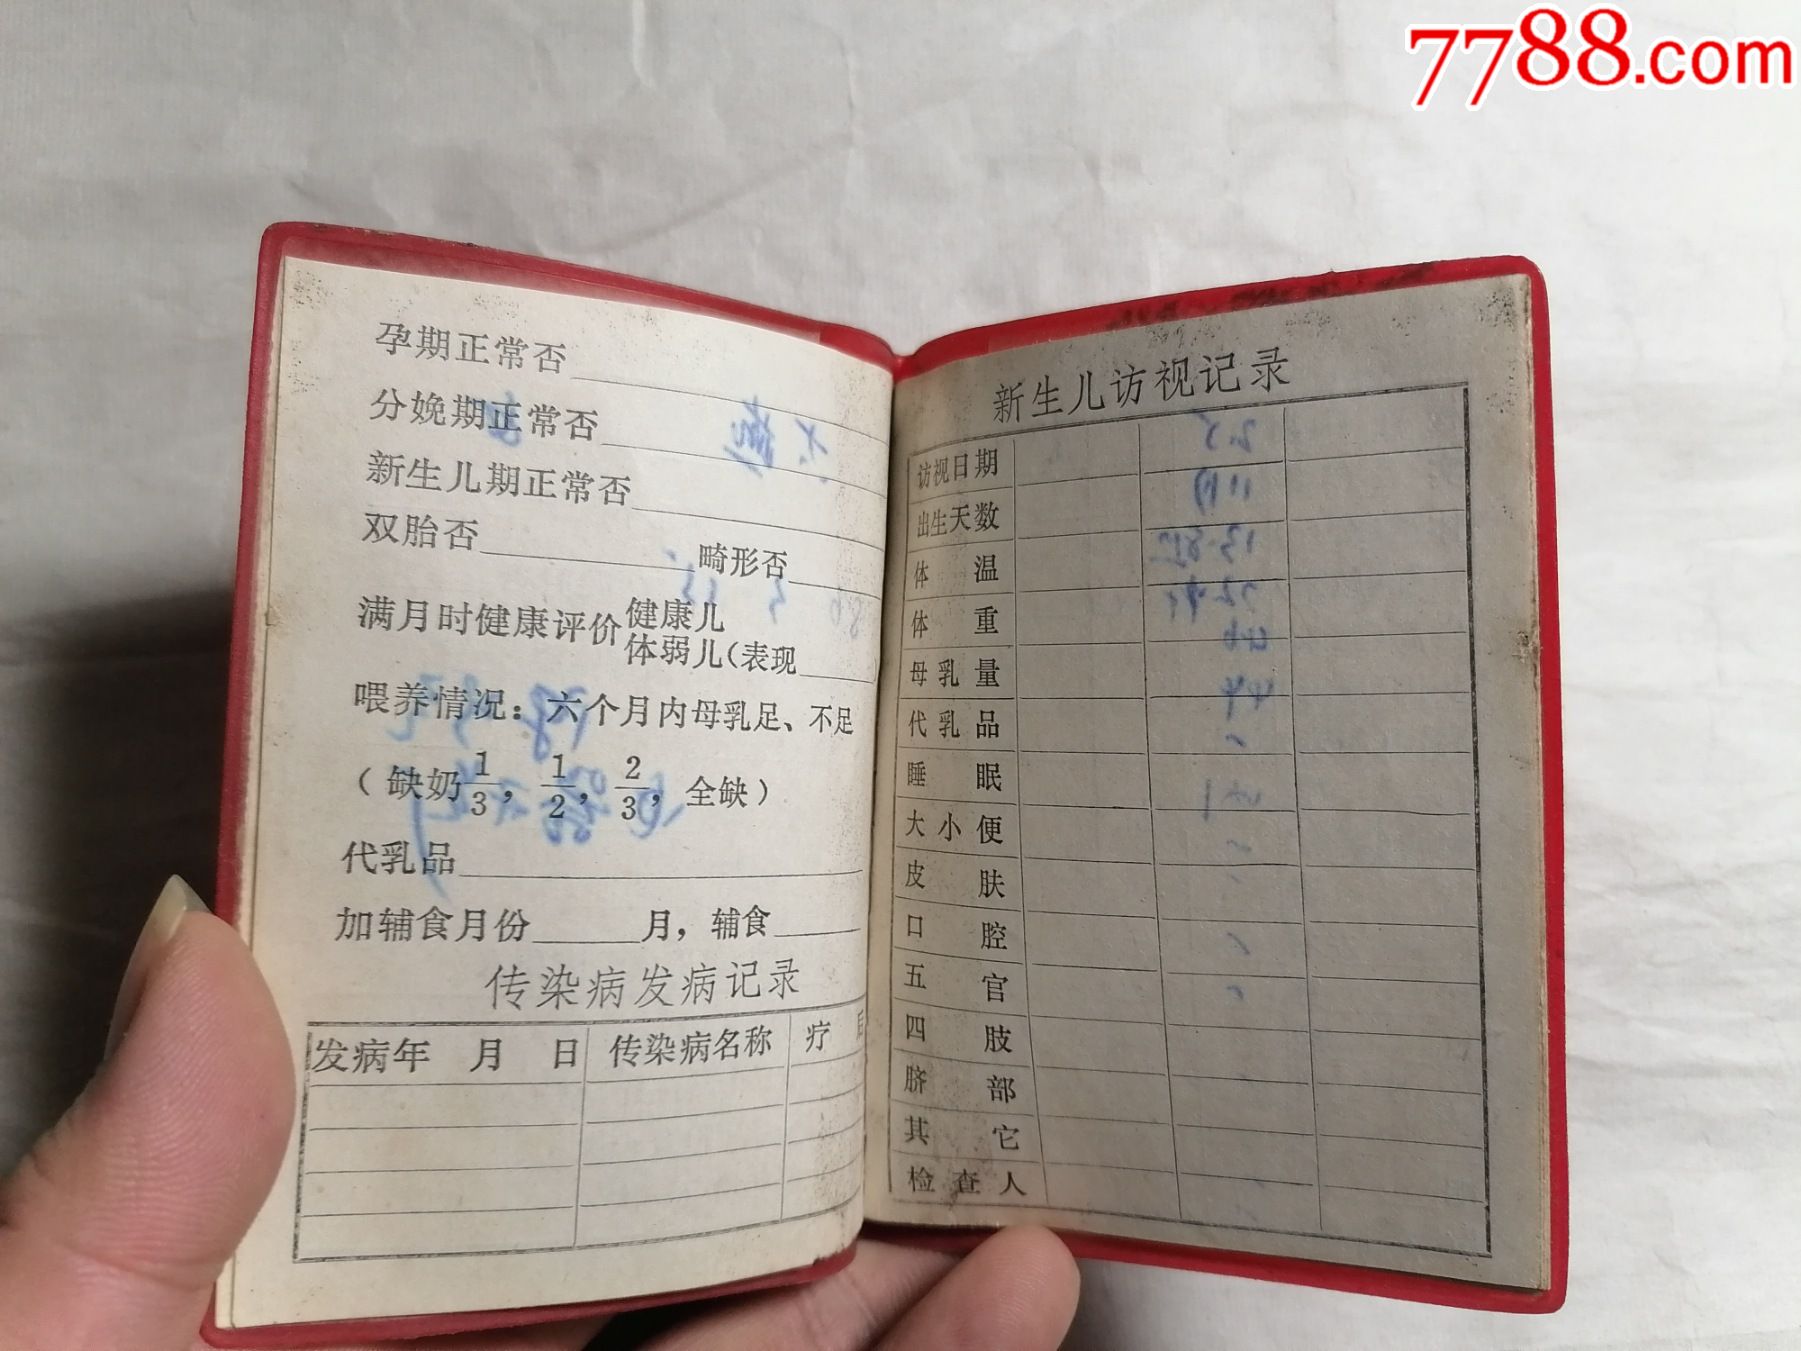 7788.com
孕期正常否
分娩期正常否
新生儿期正常否
双胎否 畸形否
满月时健康评价 健康儿
体弱儿(表现
喂养情况:六个月内母乳足、不足
(缺奶 1/3, 1/2, 2/3, 全缺)
代乳品
加辅食月份 月,辅食
传染病发病记录
发病年 月 日 传染病名称 疗
新生儿访视记录
访视日期
出生天数
体温
体重
母乳量
代乳品
睡眠
大小便
皮肤
口腔
五官
四肢
脐部
其它
检查人